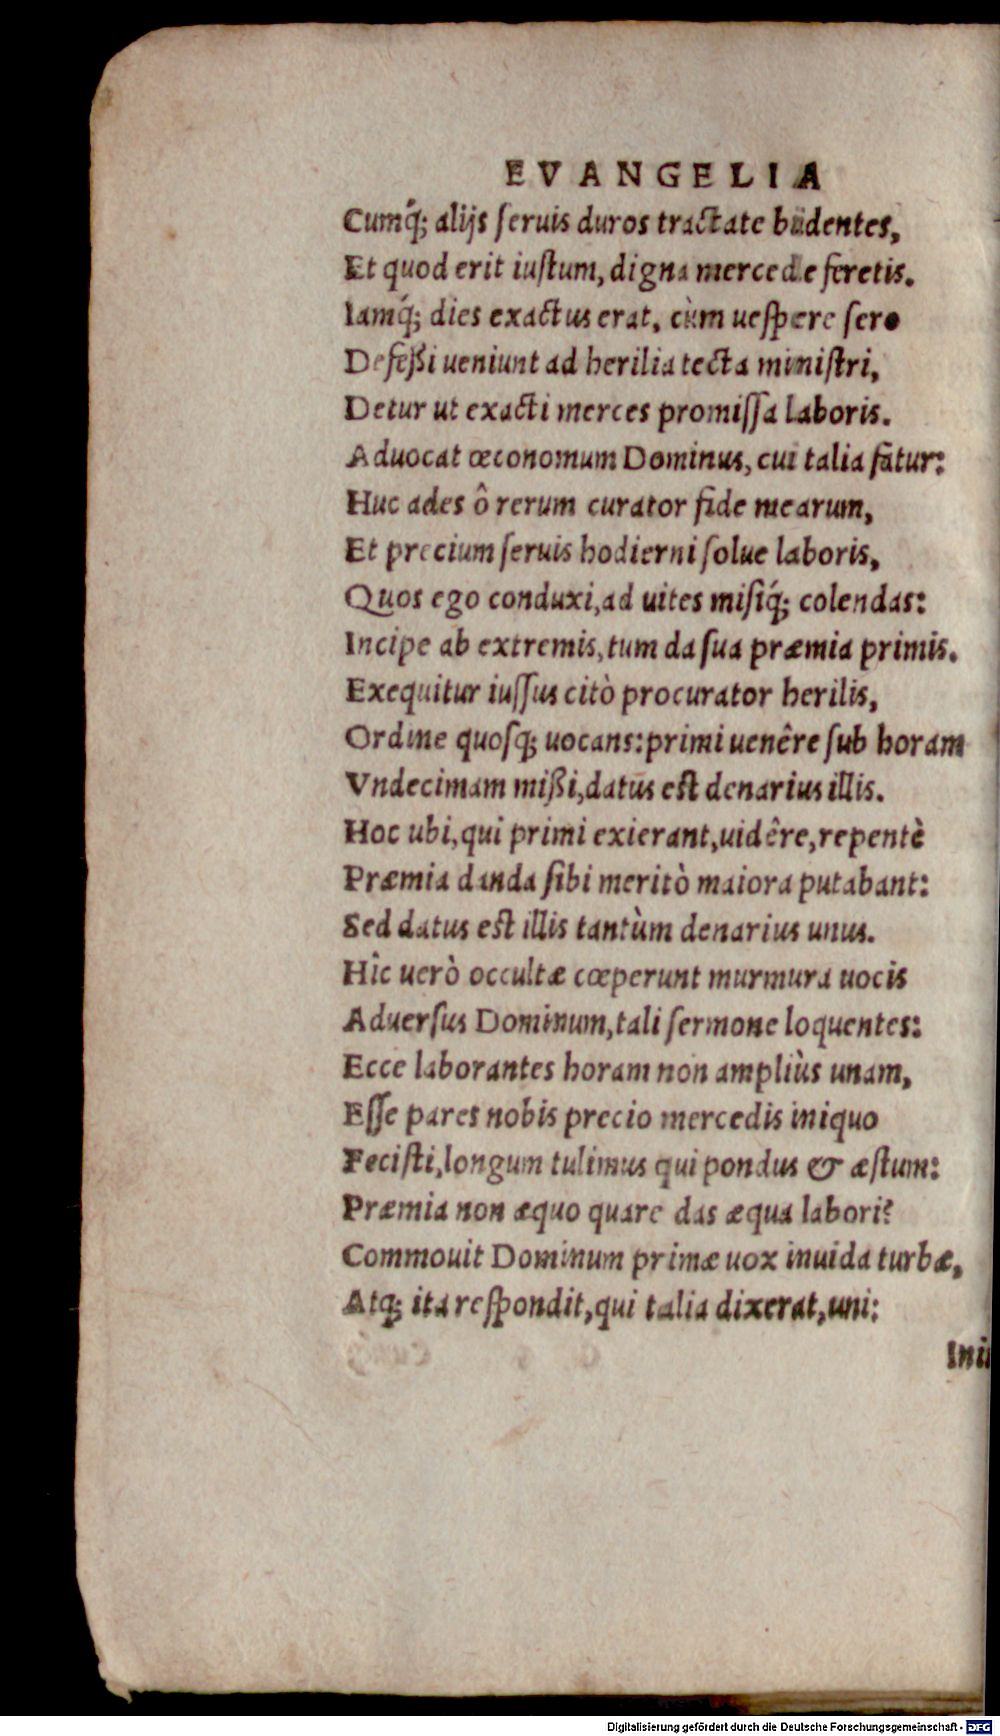 EVANGELIA
Cumq́; alijs ſeruis duros tractate bidentes,
Et quod erit iuſtum, digna mercede feretis.
Iamq́; dies exactus erat, cùm ueſpere ſero
Defeßi ueniunt ad herilia tecta miniſtri,
Detur ut exacti merces promiſſa laboris.
Aduocat œconomum Dominus, cui talia fatur:
Huc ades ô rerum curator fide mearum,
Et precium ſeruis hodierni ſolue laboris,
Quos ego conduxi, ad uites miſiq́; colendas:
Incipe ab extremis, tum da ſua præmia primis.
Exequitur iuſſus citò procurator herilis,
Ordine quoſq; uocans: primi uenêre ſub horam
Vndecimam mißi, datus eſt denarius illis.
Hoc ubi, qui primi exierant, uidêre, repentè
Præmia danda ſibi meritò maiora putabant:
Sed datus eſt illis tantùm denarius unus.
Hîc uerò occultæ cœperunt murmura uocis
Aduerſus Dominum, tali ſermone loquentes:
Ecce laborantes horam non ampliùs unam,
Eſſe pares nobis precio mercedis iniquo
Feciſti, longum tulimus qui pondus & æſtum:
Præmia non æquo quare das æqua labori?
Commouit Dominum primæ uox inuida turbæ,
Atq; ita reſpondit, qui talia dixerat, uni:
Digitalisierung gefördert durch die Deutsche Forschungsgemeinschaft - DFG